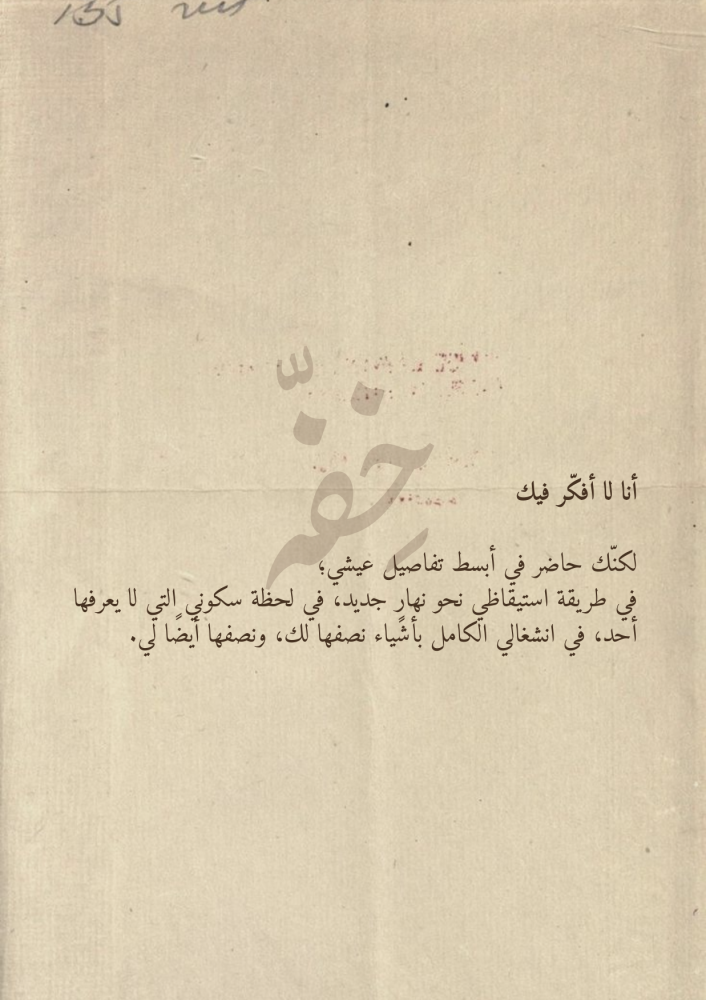 خِفّه
أنا لا أفكّر فيك
لكنّك حاضر في أبسط تفاصيل عيشي؛
في طريقة استيقاظي نحو نهارٍ جديد، في لحظة سكوني التي لا يعرفها
أحد، في انشغالي الكامل بأشياء نصفها لك، ونصفها أيضًا لي.